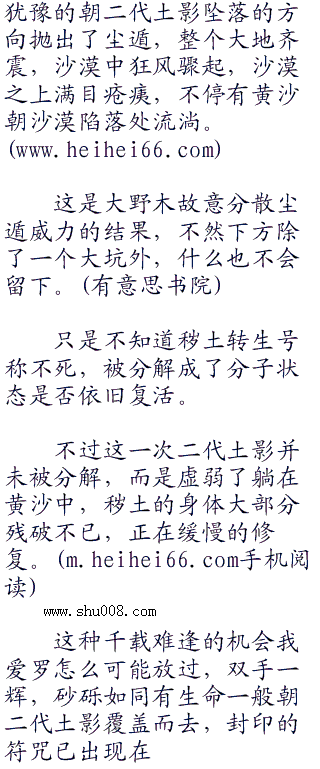 犹豫的朝二代土影坠落的方
向抛出了尘遁，整个大地齐
震，沙漠中狂风骤起，沙漠
之上满目疮痍，不停有黄沙
朝沙漠陷落处流淌。
(www.heihei66.com)
这是大野木故意分散尘
遁威力的结果，不然下方除
了一个大坑外，什么也不会
留下。(有意思书院)
只是不知道秽土转生号
称不死，被分解成了分子状
态是否依旧复活。
不过这一次二代土影并
未被分解，而是虚弱了躺在
黄沙中，秽土的身体大部分
残破不已，正在缓慢的修
复。(m.heihei66.com手机阅
读)
www.shu008.com
这种千载难逢的机会我
爱罗怎么可能放过，双手一
辉，砂砾如同有生命一般朝
二代土影覆盖而去，封印的
符咒已出现在